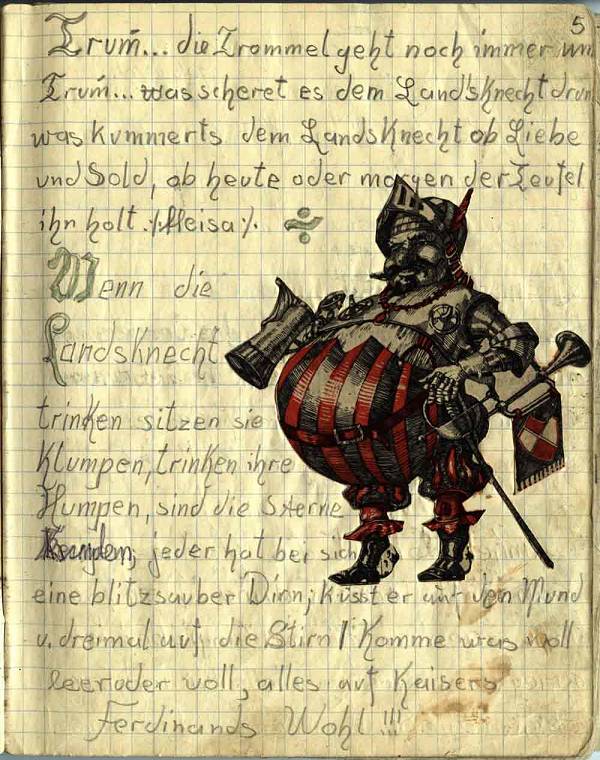 5
Trum̄... die Trommel geht noch immer um
Trum̄... was scheret es dem LandsKnecht drum
was kummerts dem LandsKnecht ob Liebe
und Sold, ob heute oder morgen der Teufel
ihn holt ./. Heisa ./.
Wenn die
LandsKnecht
trinken sitzen sie
Klumpen, trinken ihre
Humpen, sind die Sterne
jeder hat bei sich
eine blitzsauber Dirn; Küsst er auf den Mund
u. dreimal auf die Stirn / Komme was woll
leer oder voll, alles auf Kaisers
Ferdinands Wohl !!!